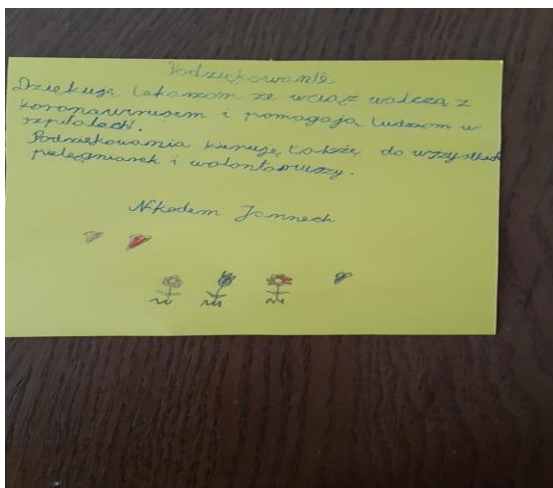 Podziękowanie
Dziękuję lekarzom ze wciąż walczą z
koronawirusem i pomagają ludziom w
szpitalach.
Podziękowania kieruję także do wszystkich
pielęgniarek i wolontariuszy.
Nikodem